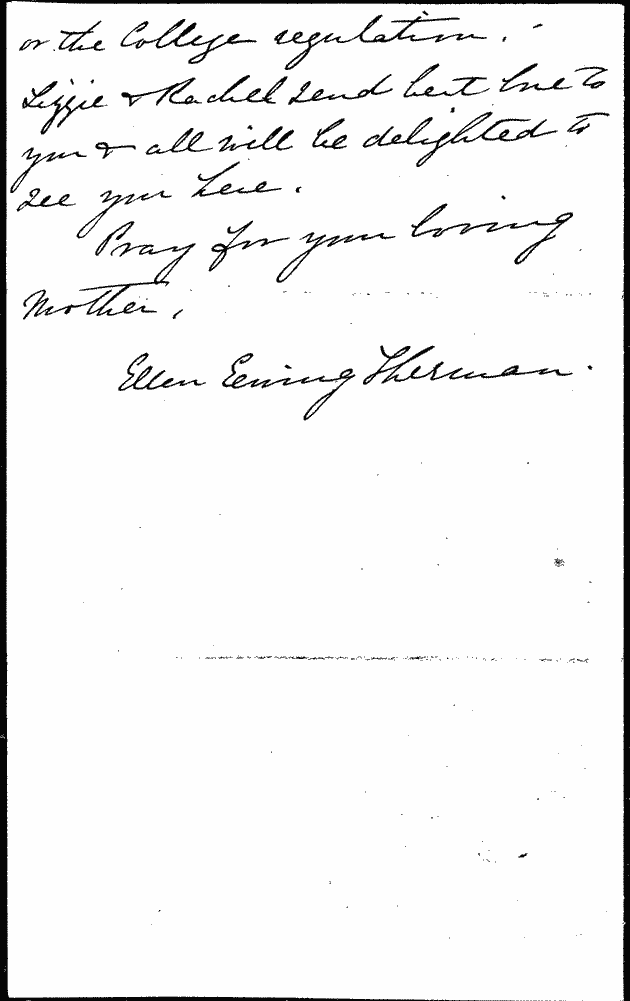 or the College regulation.
Lizzie & Rachel send best love to
you & all will be delighted to
see you here.
Pray for your loving
Mother,
Ellen Ewing Sherman.